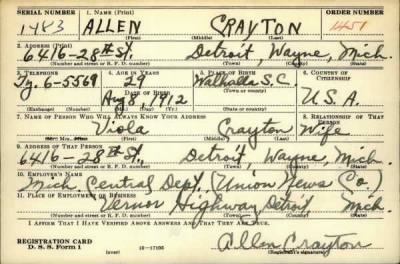 SERIAL NUMBER 1. NAME (Print) ORDER NUMBER
1483 ALLEN CRAYTON 1451
(First) (Middle) (Last)
2. ADDRESS (Print)
6416-28th St. Detroit, Wayne, Mich.
(Number and street or R. F. D. number) (Town) (County) (State)
3. TELEPHONE 4. AGE IN YEARS 5. PLACE OF BIRTH 6. COUNTRY OF CITIZENSHIP
Ty. 6-5569 29 Walhalla S.C.
DATE OF BIRTH (Town or county)
Aug 8, 1912 U.S.A.
(Exchange) (Number) (Mo.) (Day) (Yr.) (State or country)
7. NAME OF PERSON WHO WILL ALWAYS KNOW YOUR ADDRESS 8. RELATIONSHIP OF THAT PERSON
Viola Crayton Wife
(Mr., Mrs., Miss) (First) (Middle) (Last)
9. ADDRESS OF THAT PERSON
6416-28th St. Detroit, Wayne, Mich.
(Number and street or R. F. D. number) (Town) (County) (State)
10. EMPLOYER'S NAME
Mich. Central Dept. (Union News Co.)
11. PLACE OF EMPLOYMENT OR BUSINESS
Vernor Highway Detroit Mich.
(Number and street or R. F. D. number) (Town) (County) (State)
I AFFIRM THAT I HAVE VERIFIED ABOVE ANSWERS AND THAT THEY ARE TRUE.
REGISTRATION CARD
D. S. S. Form 1 (over) 16-17105 Allen Crayton
(Registrant's signature)